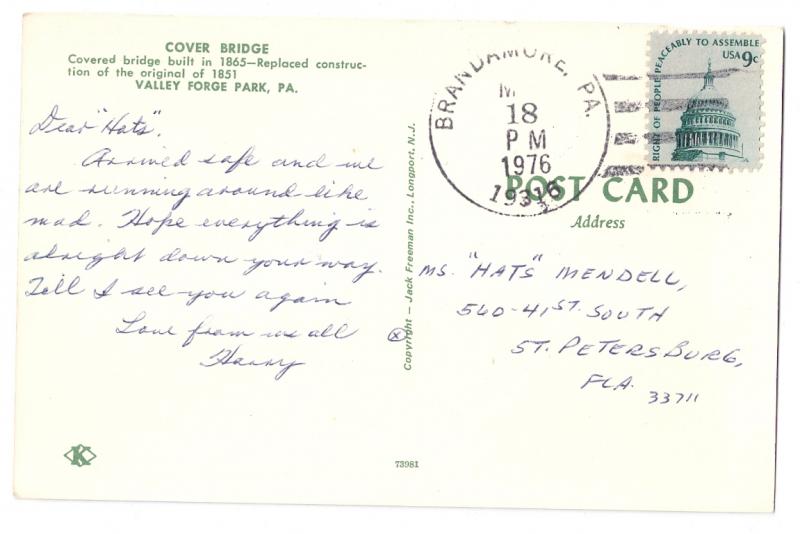 COVER BRIDGE
Covered bridge built in 1865—Replaced construc-
tion of the original of 1851
VALLEY FORGE PARK, PA.
Dear "Hats".
Arrived safe and we
are running around like
mad. Hope everything is
alright down your way.
Till I see you again
Love from us all
Harry
K
73981
Copyright — Jack Freeman Inc., Longport, N.J.
BRANDAMORE, PA.
M
18
PM
1976
19316
RIGHT OF PEOPLE PEACEABLY TO ASSEMBLE
USA 9c
POST CARD
Address
MS. "HATS" MENDELL,
560-41ST. SOUTH
ST. PETERSBURG,
FLA.
33711